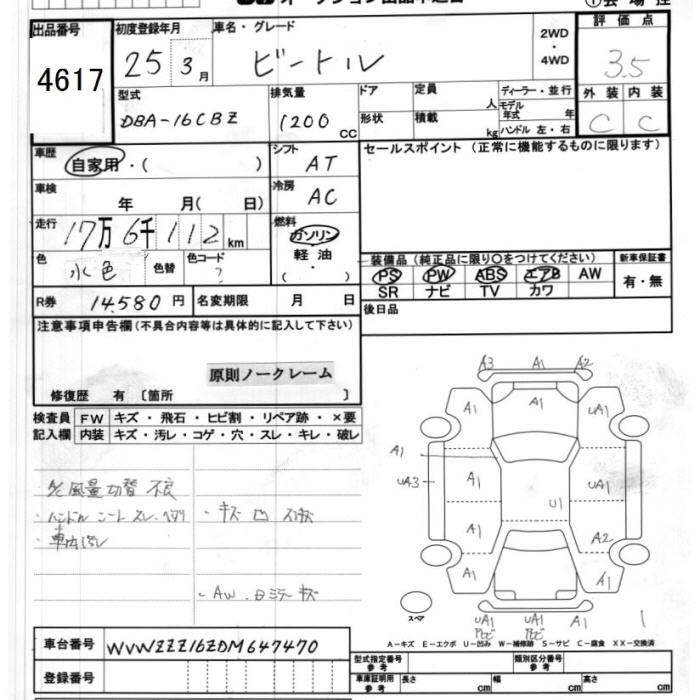 出品番号
初度登録年月
車名・グレード
評価点
4617
25 3月
ビートル
2WD
・
4WD
3.5
外装 内装
C C
型式
DBA-16CBZ
排気量
1200 CC
ドア
定員
人
ディーラー・並行
モデル年式 年
形状
積載
kg
ハンドル 左・右
車歴
自家用・( )
シフト
AT
セールスポイント (正常に機能するものに限ります)
車検
年 月( 日)
冷房
AC
走行
17万6千112 km
燃料
ガソリン
軽油
( ・ )
色
水色
色替
色コード
?
装備品 (純正品に限り〇をつけてください)
新車保証書
PS PW ABS エアB AW
有・無
SR ナビ TV カワ
R券 14.580 円
名変期限 月 日
後日品
注意事項申告欄 (不具合内容等は具体的に記入して下さい)
原則ノークレーム
修復歴 有 〔箇所 〕
検査員 FW キズ・飛石・ヒビ割・リペア跡・×要
記入欄 内装 キズ・汚レ・コゲ・穴・スレ・キレ・破レ
風量切替 不良
・キズ 凹
・AW.
A3 A1 A2
A1 A1 UA1
A1
UA3
A1 UA1
U1
A1 A2
A1 A1
スペア
UA1 UA1 A1
1
A-キズ E-エクボ U-凹み W-補修跡 S-サビ C-腐食 XX-交換済
車台番号 WVWZZZ16ZDM647470
登録番号
型式指定番号 参考
類別区分番号 参考
車庫証明用 参考
長さ cm
幅 cm
高さ cm